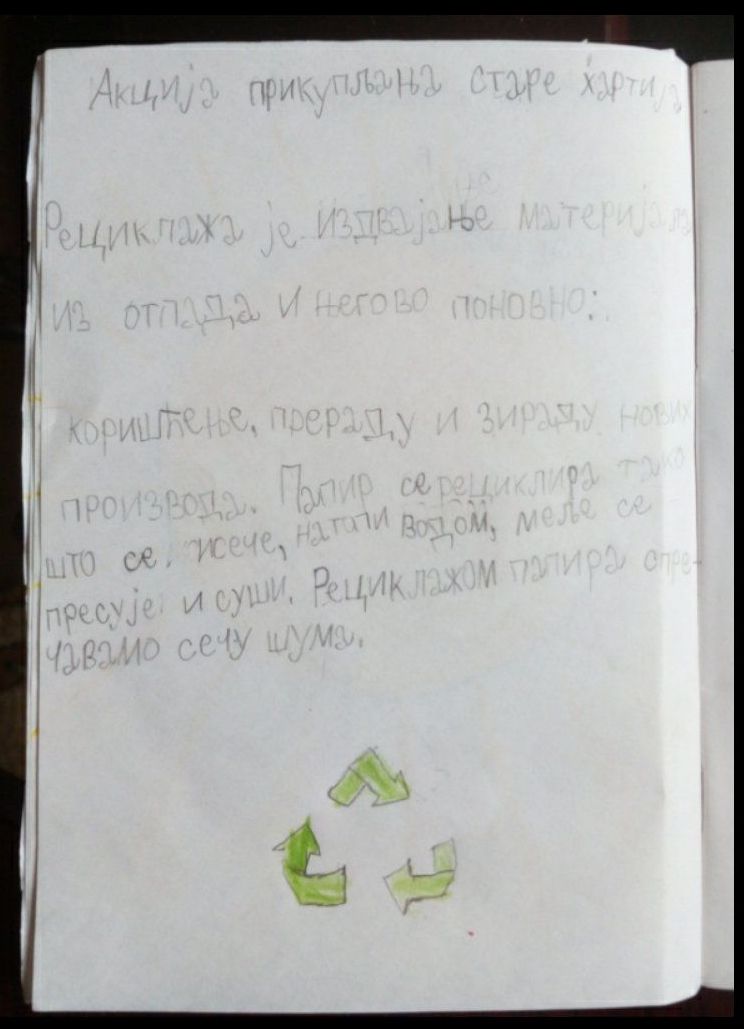 Акција прикупљања старе хартија
Рециклажа је издвајање материјала
из отпада и његово поновно:
коришћење, прераду и зираду нових
производа. Папир се рециклира тако
што се исече, натопи водом, меље се
пресује и суши. Рециклажом папира спре-
чавамо сечу шума.